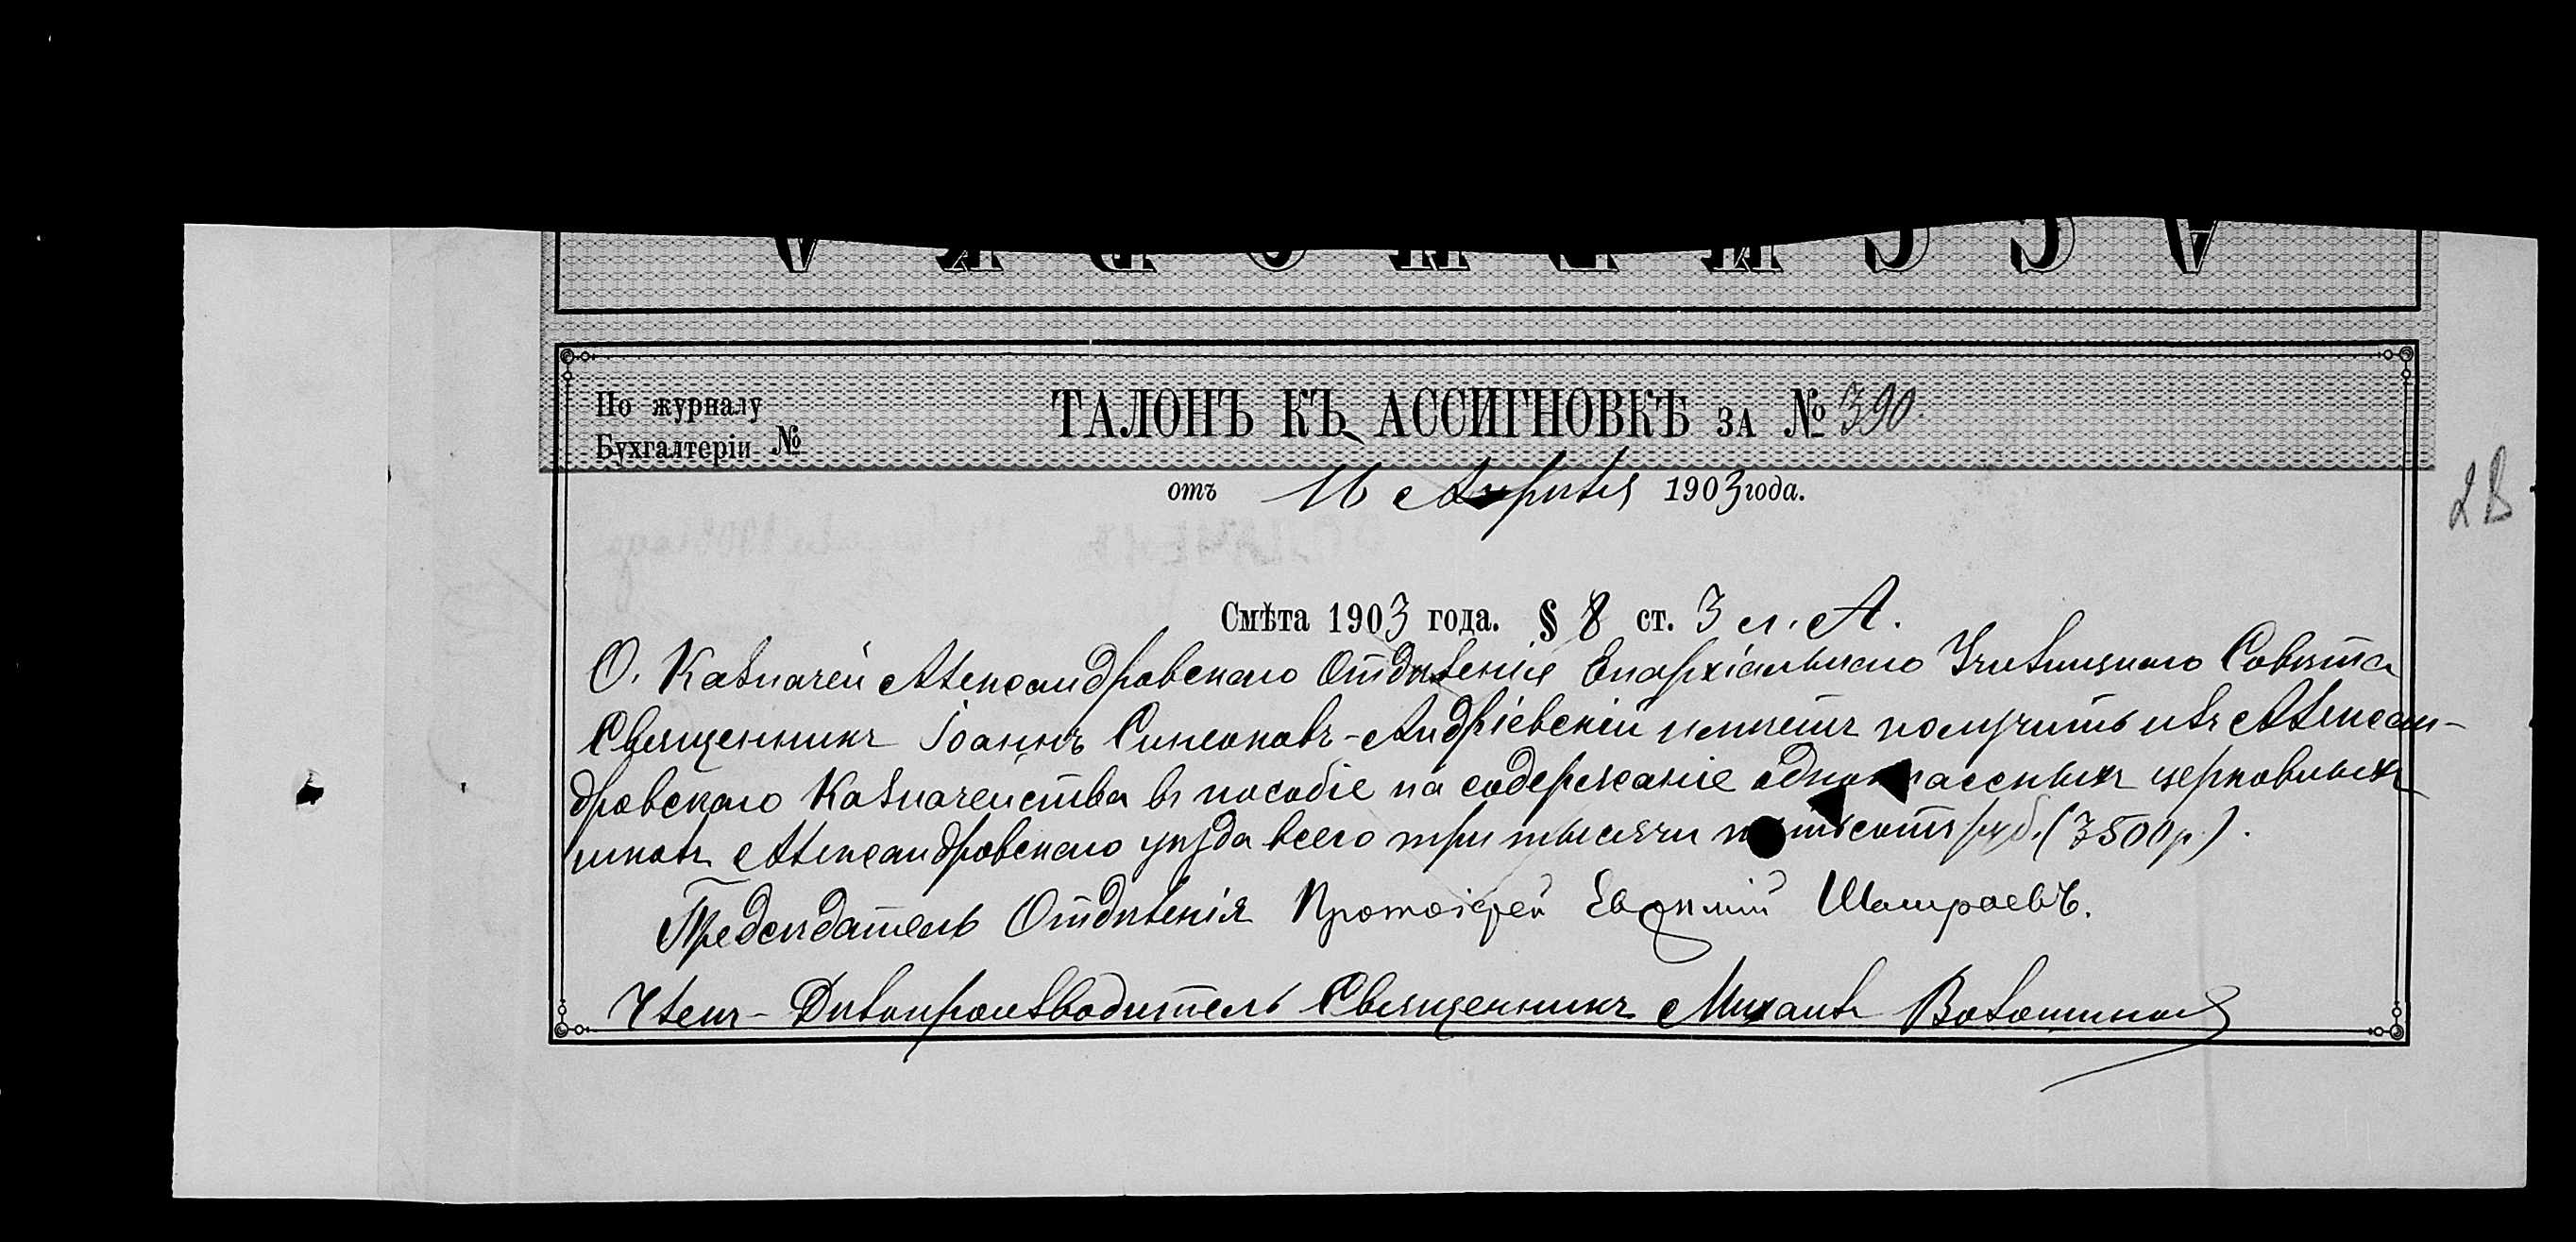 АССИГНОВКА
По журналу
Бухгалтеріи №
ТАЛОНЪ КЪ АССИГНОВКѢ ЗА № 390.
отъ 16 Апрѣля 1903 года.
2 В
Смѣта 1903 года. § 8 ст. 3 л. А.
О. Казначей Александровскаго Отдѣленія Епархіальнаго Училищнаго Совѣта
Священникъ Іоаннъ Синеоковъ-Андріевскій имѣетъ получить изъ Алексан-
дровскаго Казначейства въ пособіе на содержаніе одноклассныхъ церковныхъ
школъ Александровскаго уѣзда всего три тысячи пятьсотъ руб. (3500 р.).
Предсѣдатель Отдѣленія Протоіерей Евфимій
Членъ-Дѣлопроизводитель Священникъ Михаилъ Волошиновъ